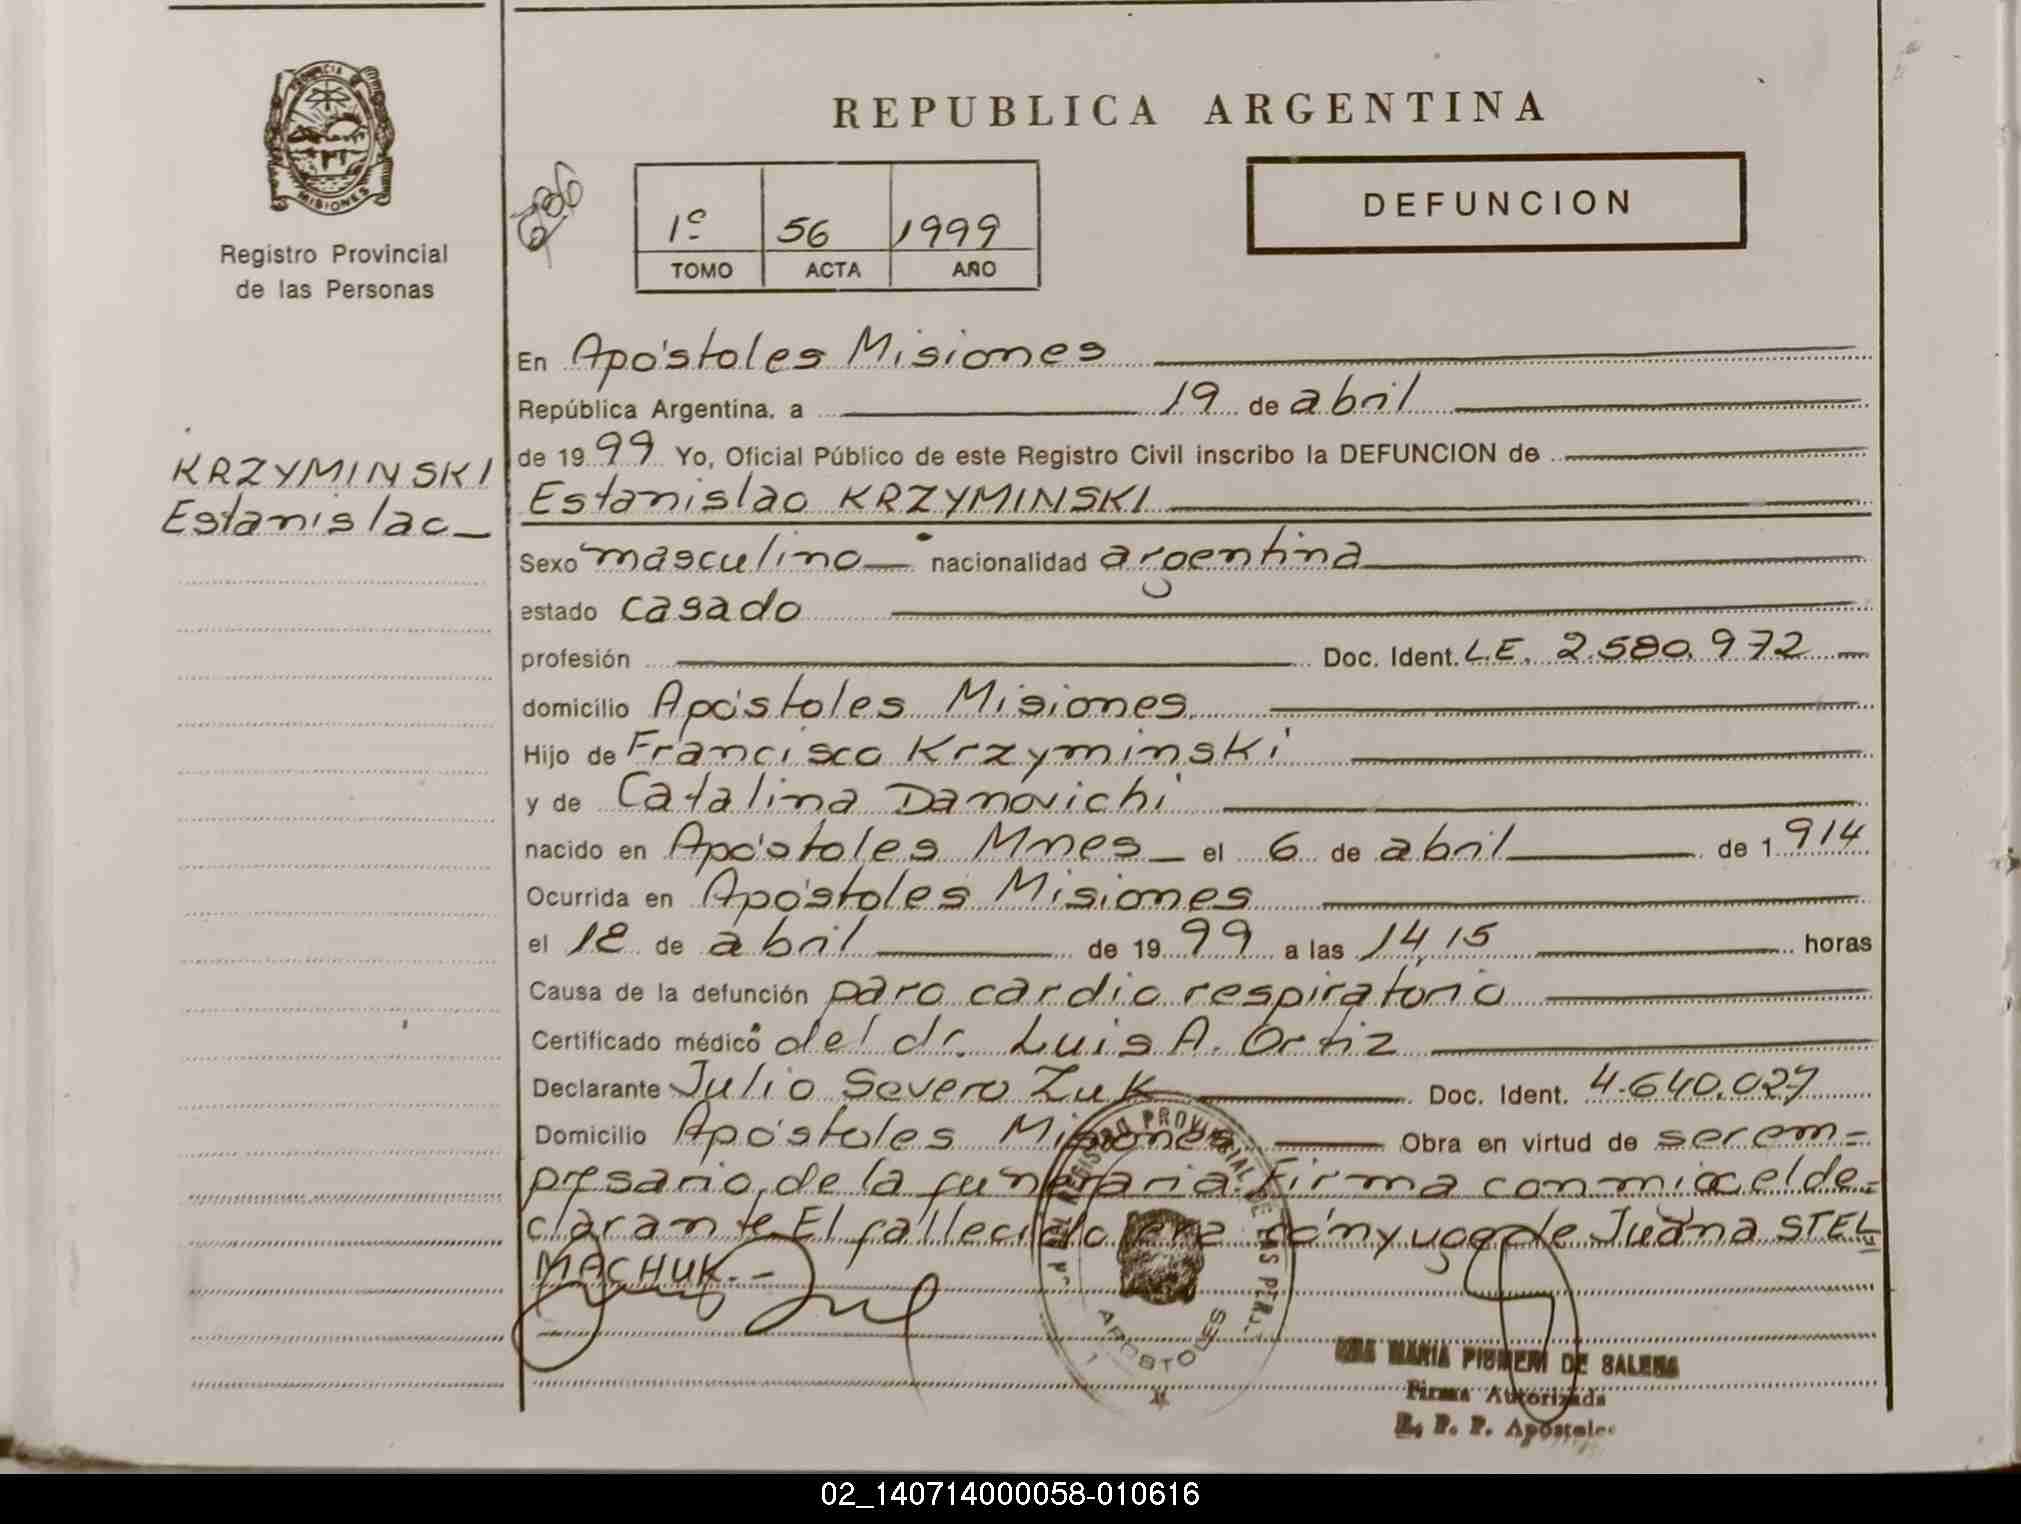 PROVINCIA DE
MISIONES
Registro Provincial
de las Personas
KRZYMINSKI
Estanislao
REPUBLICA ARGENTINA
1º 56 1999
TOMO ACTA AÑO
DEFUNCION
En Apóstoles Misiones
República Argentina, a 19 de abril
de 1999 Yo, Oficial Público de este Registro Civil inscribo la DEFUNCION de
Estanislao KRZYMINSKI
Sexo masculino nacionalidad argentina
estado casado
profesión Doc. Ident. L.E. 2.580.972
domicilio Apóstoles Misiones
Hijo de Francisco Krzyminski
y de Catalina Danovichi
nacido en Apóstoles Mnes el 6 de abril de 1914
Ocurrida en Apóstoles Misiones
el de abril de 1999 a las 14,15 horas
Causa de la defunción paro cardio respiratorio
Certificado médico del dr. Luis A. Ortiz
Declarante Julio Severo Zuk Doc. Ident. 4.640.027
Domicilio Apóstoles Misiones Obra en virtud de ser em=
presario de la funeraria. Firma conmigo el de=
clarante El fallecido era cónyuge de Juana STEL
MACHUK.-
REGISTRO PROVINCIAL DE LAS PER
APOSTOLES
MARIA DE
Firma Autorizada
R. P. P. Apóstoles
02_140714000058-010616